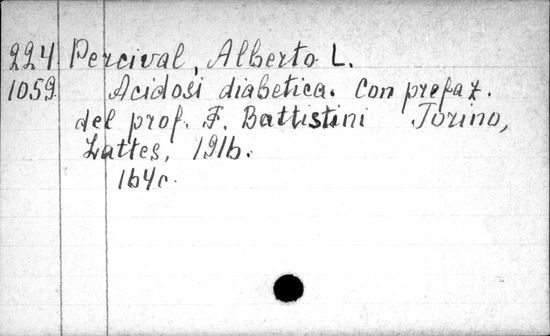 224 Percival, Alberto L.
1059 Acidosi diabetica. Con prefaz.
del prof. F. Battistini Torino,
Lattes, 1916.
164c.